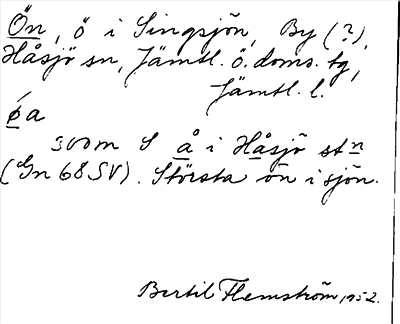 Ön, ö i Singsjön, By (?),
Håsjö sn, Jämtl. ö. doms. tg,
Jämtl. l.
ǿa
300m S å i Håsjö stn
(Gn 68 SV). Största ön i sjön.
Bertil Flemström 1952.